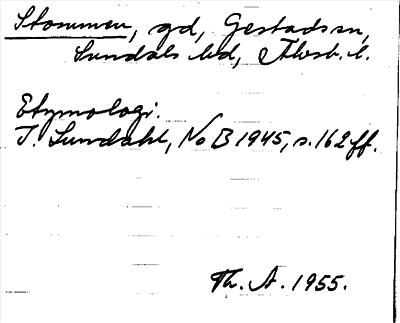 Stommen, gd, Gestads sn,
Sundals hd, Älvsb. l.
Etymologi.
I. Lundahl, NoB 1945, s. 162 ff.
Th. A. 1955.